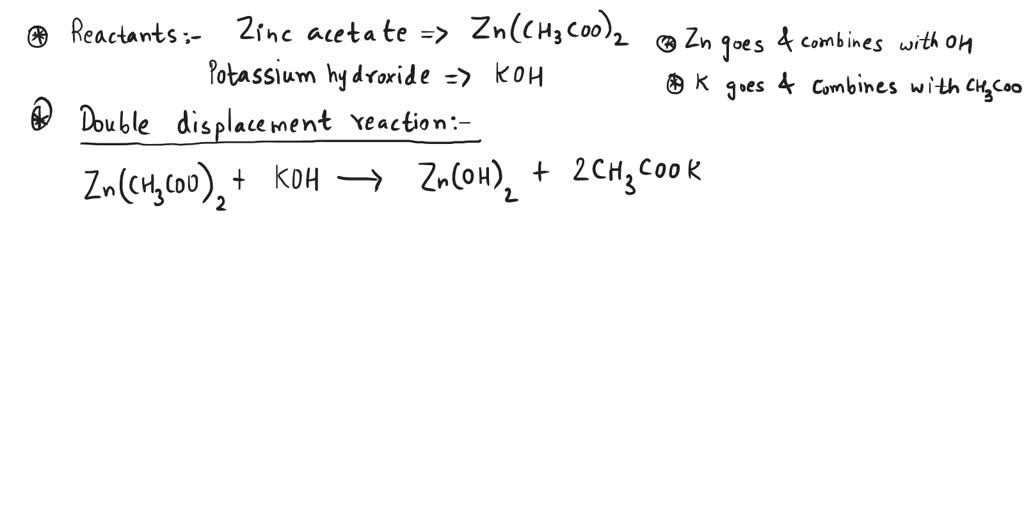 ⊛ Reactants:- Zinc acetate => Zn(CH₃COO)₂
Potassium hydroxide => KOH
⊛ Zn goes & combines with OH
⊛ K goes & combines with CH₃COO
⊛ Double displacement reaction:-
Zn(CH₃COO)₂ + KOH ⟶ Zn(OH)₂ + 2CH₃COOK